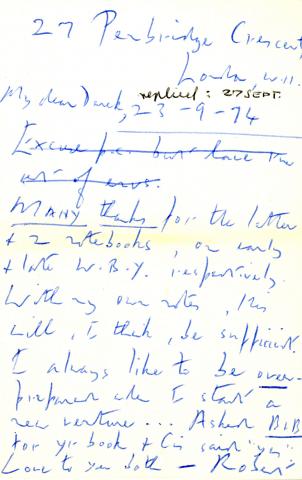 27 Pembridge Crescent,
London, W.11.
My dear Derek, replied: 27 SEPT.
23-9-74
Excuse pen but have the
of envs.
MANY thanks for the letter
+ 2 notebooks, on early
+ late W.B.Y. respectively.
With my own notes, this
will, I think, be sufficient.
I always like to be over-
prepared when I start a
new venture... Asked BIB
for yr book + C is said "yes".
Love to you both - Robert